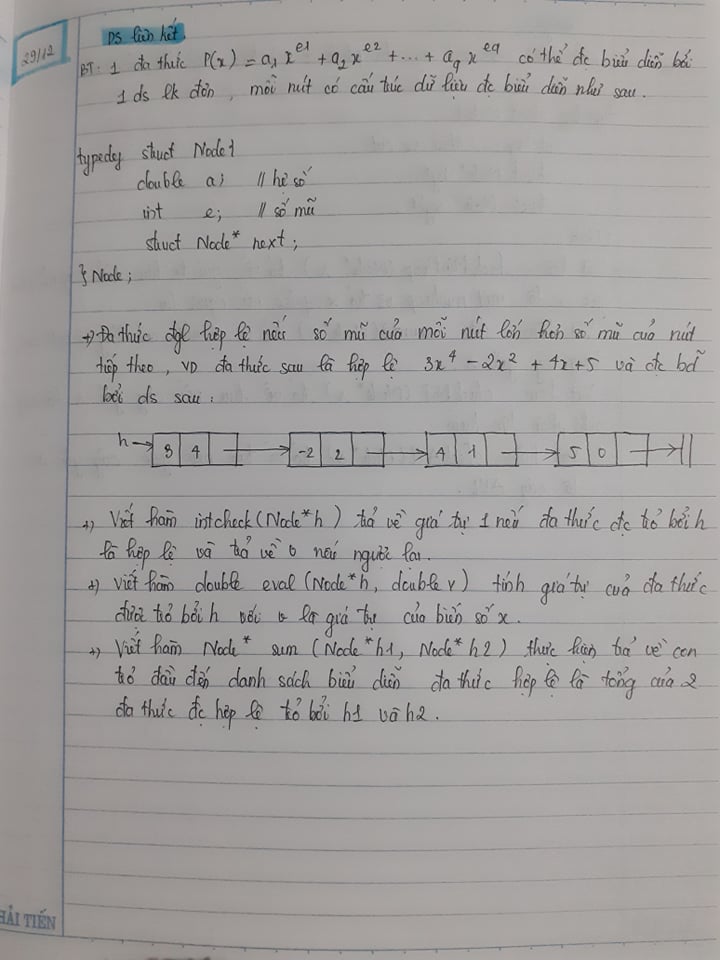 DS liên kết.
29/12
BT: 1 đa thức P(x) = a1 x^e1 + a2 x^e2 + ... + an x^en có thể đc biểu diễn bởi
1 ds lk đơn, mỗi nút có cấu trúc dữ liệu đc biểu diễn như sau.
typedef struct Node{
double a; // hệ số
int e; // số mũ
struct Node* next;
} Node;
+) Đa thức đgl hợp lệ nếu số mũ của mỗi nút lớn hơn số mũ của nút
tiếp theo, VD đa thức sau là hợp lệ 3x^4 - 2x^2 + 4x + 5 và đc bd
bởi ds sau:
h 3 4 -2 2 4 1 5 0
+) Viết hàm int check(Node*h) trả về giá trị 1 nếu đa thức đc trỏ bởi h
là hợp lệ và trả về 0 nếu ngược lại.
+) Viết hàm double eval(Node*h, double v) tính giá trị của đa thức
được trỏ bởi h với v là giá trị của biến số x.
+) Viết hàm Node* sum (Node*h1, Node*h2) thực hiện trả về con
trỏ đầu đến danh sách biểu diễn đa thức hợp lệ là tổng của 2
đa thức đc hợp lệ trỏ bởi h1 và h2.
HẢI TIẾN